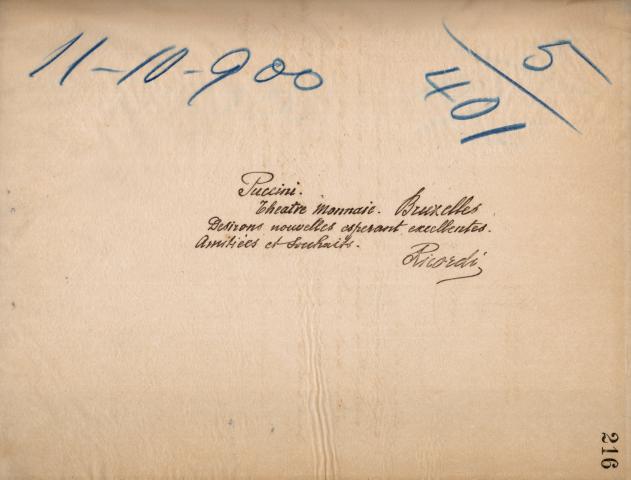 11-10-900
5/401
Puccini.
Theatre Monnaie. Bruxelles
Desirons nouvelles esperant excellentes.
Amitiées et Souhaits.
Ricordi
216